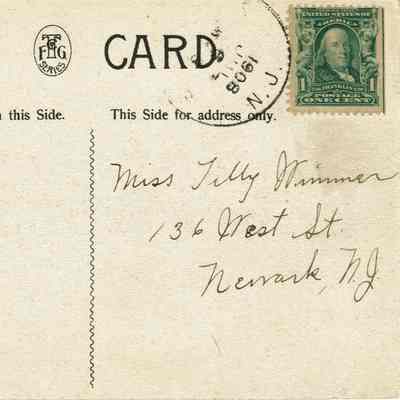 T
F H G
SERIES
CARD
1908
N.J.
UNITED STATES OF
AMERICA
1 1
POSTAGE
ONE CENT
this Side.
This Side for address only.
Miss Tilly Wimmer
136 West St.
Newark, N.J.